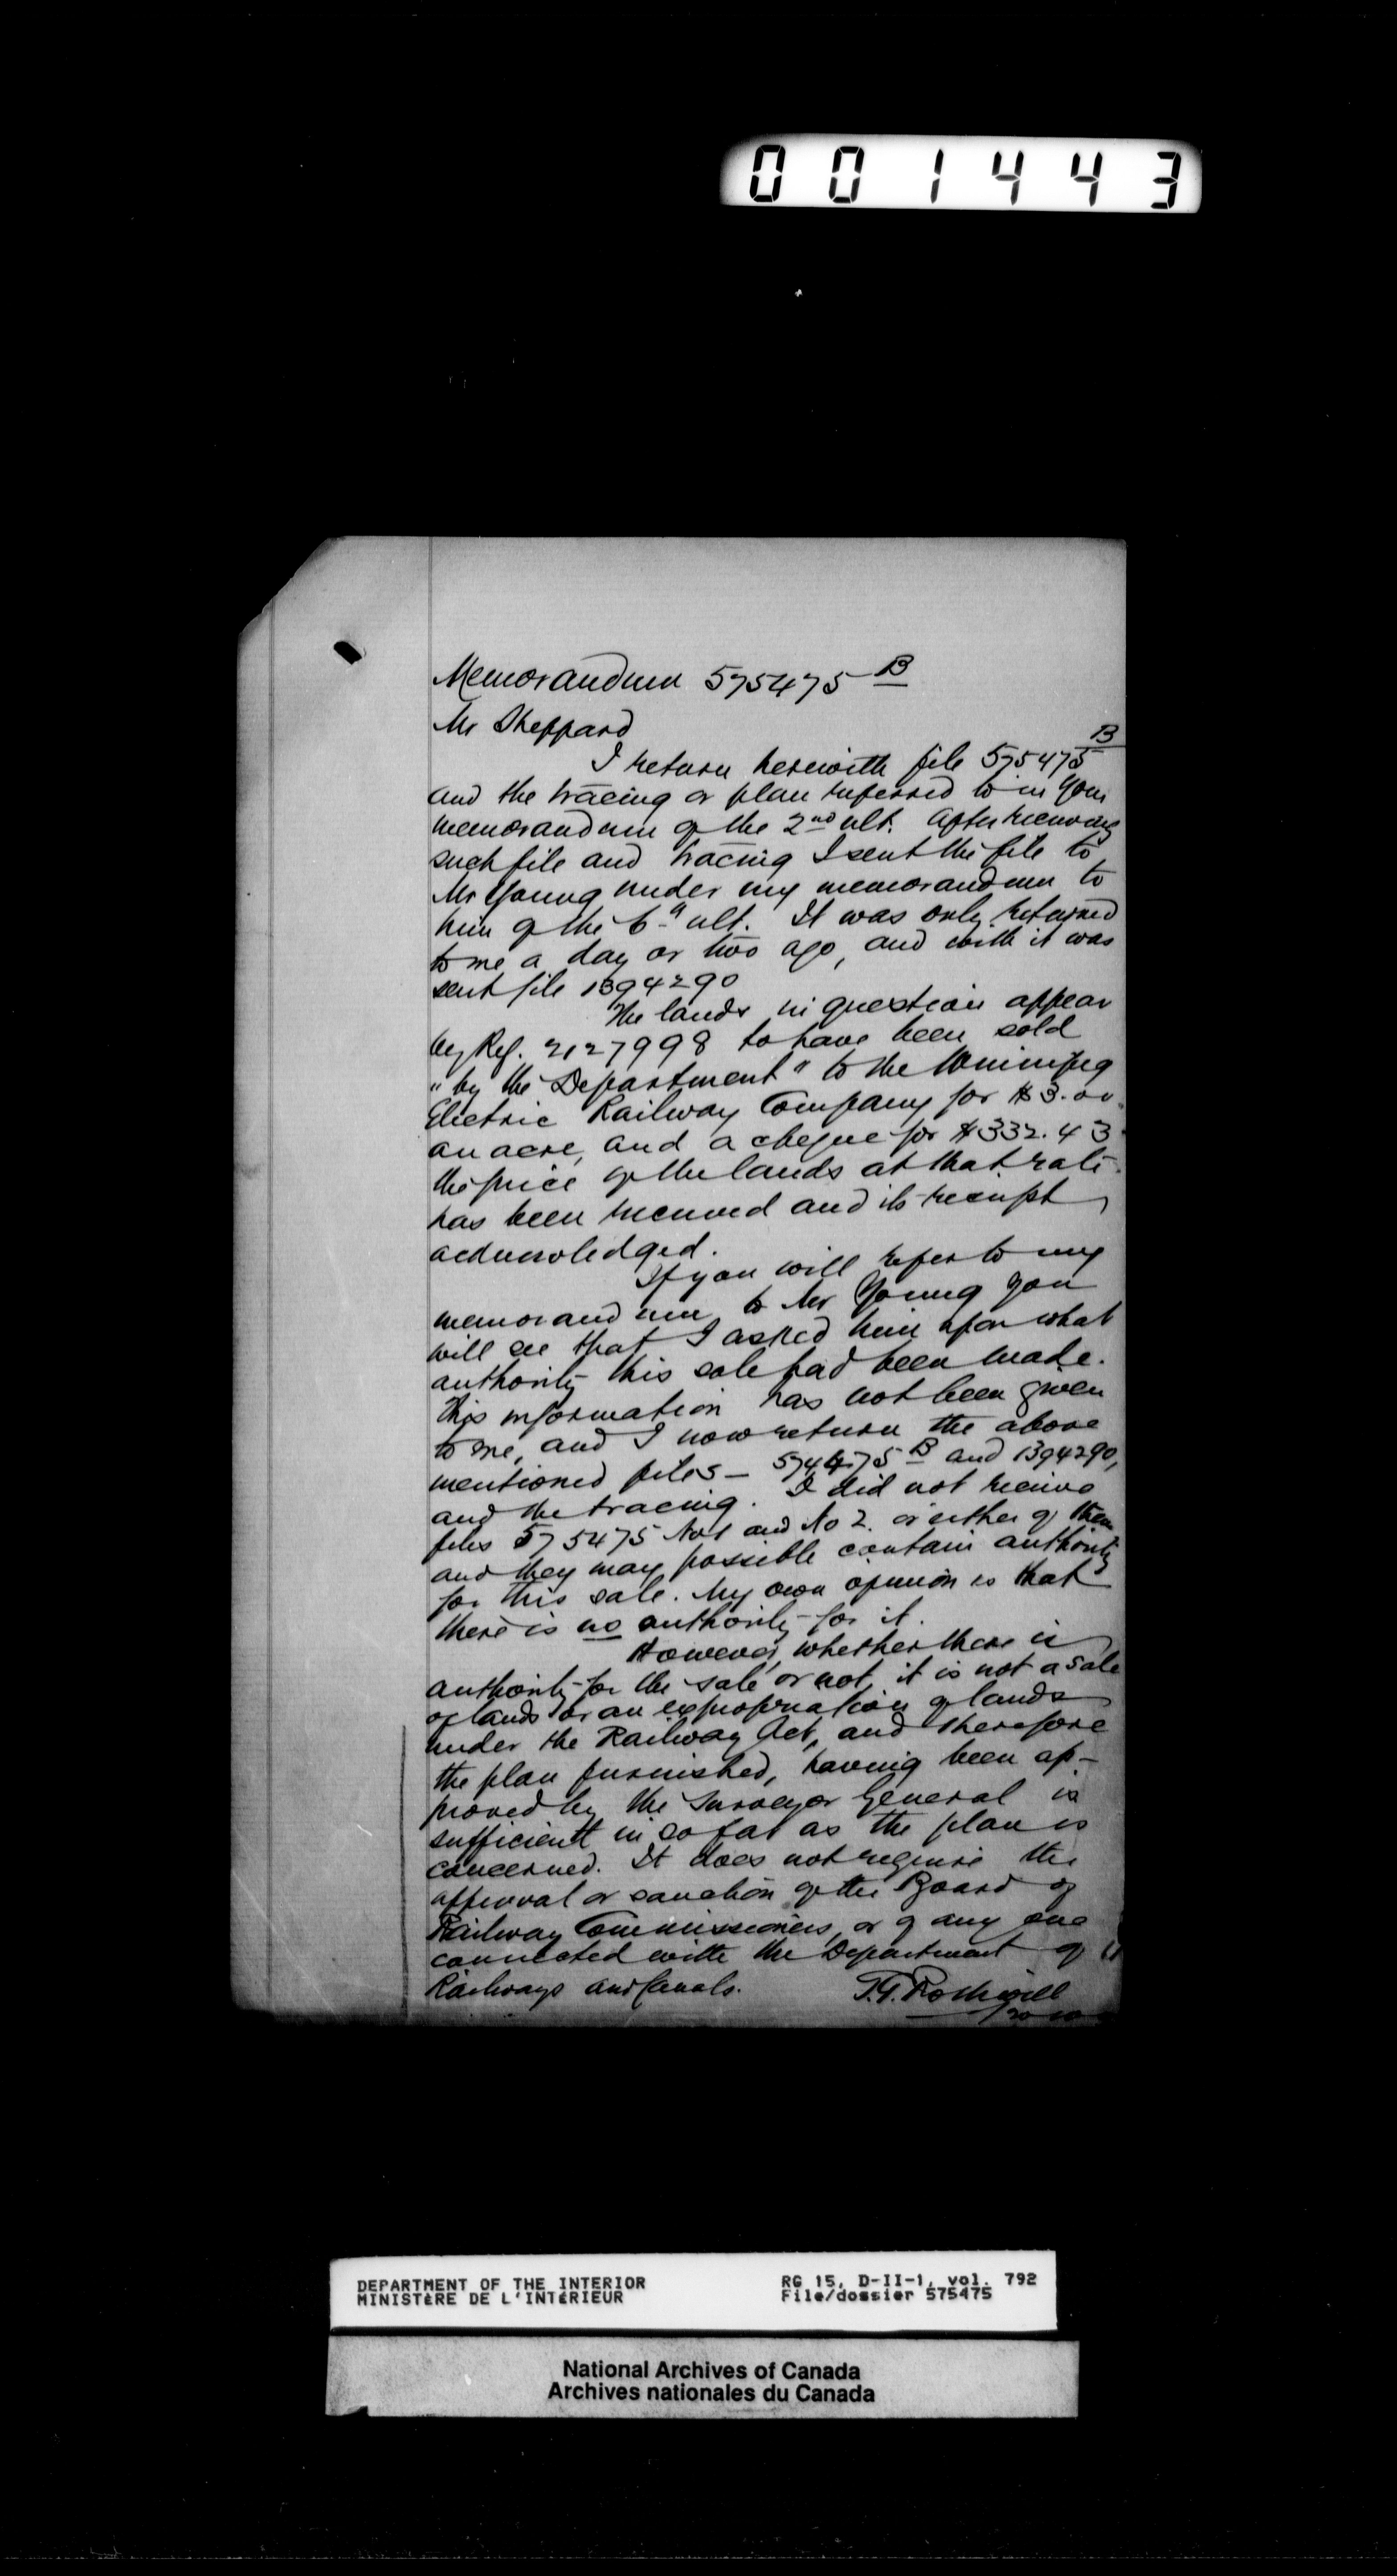 001443
Memorandum 575475 B
Mr Sheppard
I return herewith file 575475 B
and the tracing or plan referred to in your
memorandum of the 2nd ult. After receiving
such file and tracing I sent the file to
Mr Young under my memorandum to
him of the 6th ult. It was only returned
to me a day or two ago, and with it was
sent file 1394290
The lands in question appear
by Ref. 2127998 to have been sold
"by the Department" to the Winnipeg
Electric Railway Company for $3.00
an acre, and a cheque for $332.43
the price of the lands at that rate
has been received and its receipt
acknowledged.
If you will refer to my
memorandum to Mr Young you
will see that I asked him upon what
authority this sale had been made.
This information has not been given
to me, and I now return the above
mentioned files – 574475 B and 1394290,
and the tracing. I did not receive
files 575475 No 1 and No 2. or either of them
and they may possible contain authority
for this sale. My own opinion is that
there is no authority for it.
However, whether there is
authority for the sale or not, it is not a sale
of lands or an expropriation of lands
under the Railway Act, and therefore
the plan furnished, having been ap-
proved by the Surveyor General is
sufficient in so far as the plan is
concerned. It does not require the
approval or sanction of the Board of
Railway Commissioners, or of any one
connected with the Department of
Railways and Canals.
T.G. Rothwell
DEPARTMENT OF THE INTERIOR
MINISTÈRE DE L'INTÉRIEUR
RG 15, D-II-1, vol. 792
File/dossier 575475
National Archives of Canada
Archives nationales du Canada